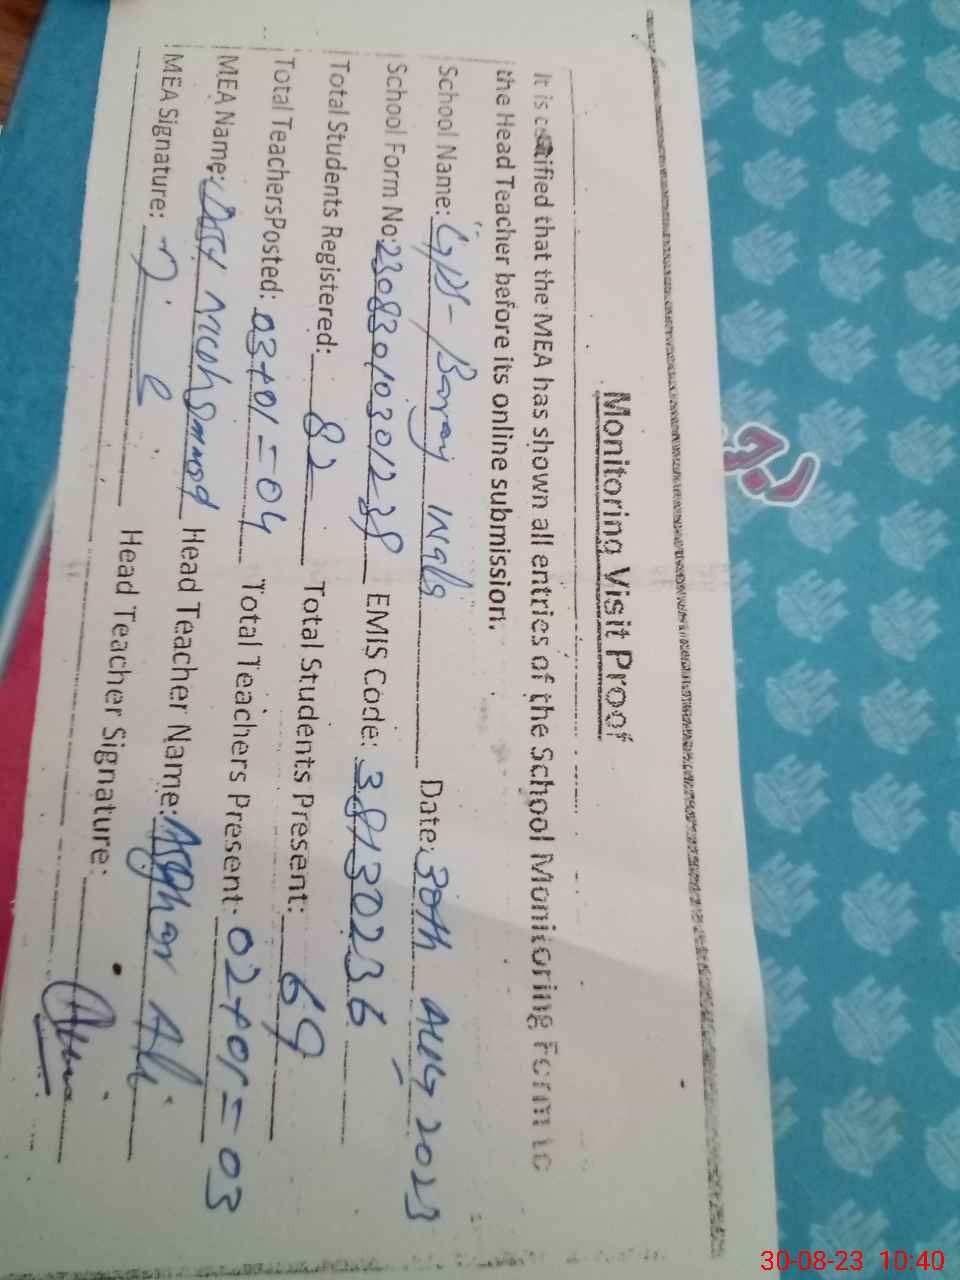 Monitoring Visit Proof
It is certified that the MEA has shown all entries of the School Monitoring Form to
the Head Teacher before its online submission.
School Name: GPS- Date: 30th Aug 2023
School Form No: 23083010301238 EMIS Code: 38130236
Total Students Registered: 82 Total Students Present: 69
Total TeachersPosted: 03+01=04 Total Teachers Present: 02+01=03
MEA Name: Head Teacher Name: Asghar Ali
MEA Signature: Head Teacher Signature:
30-08-23 10:40